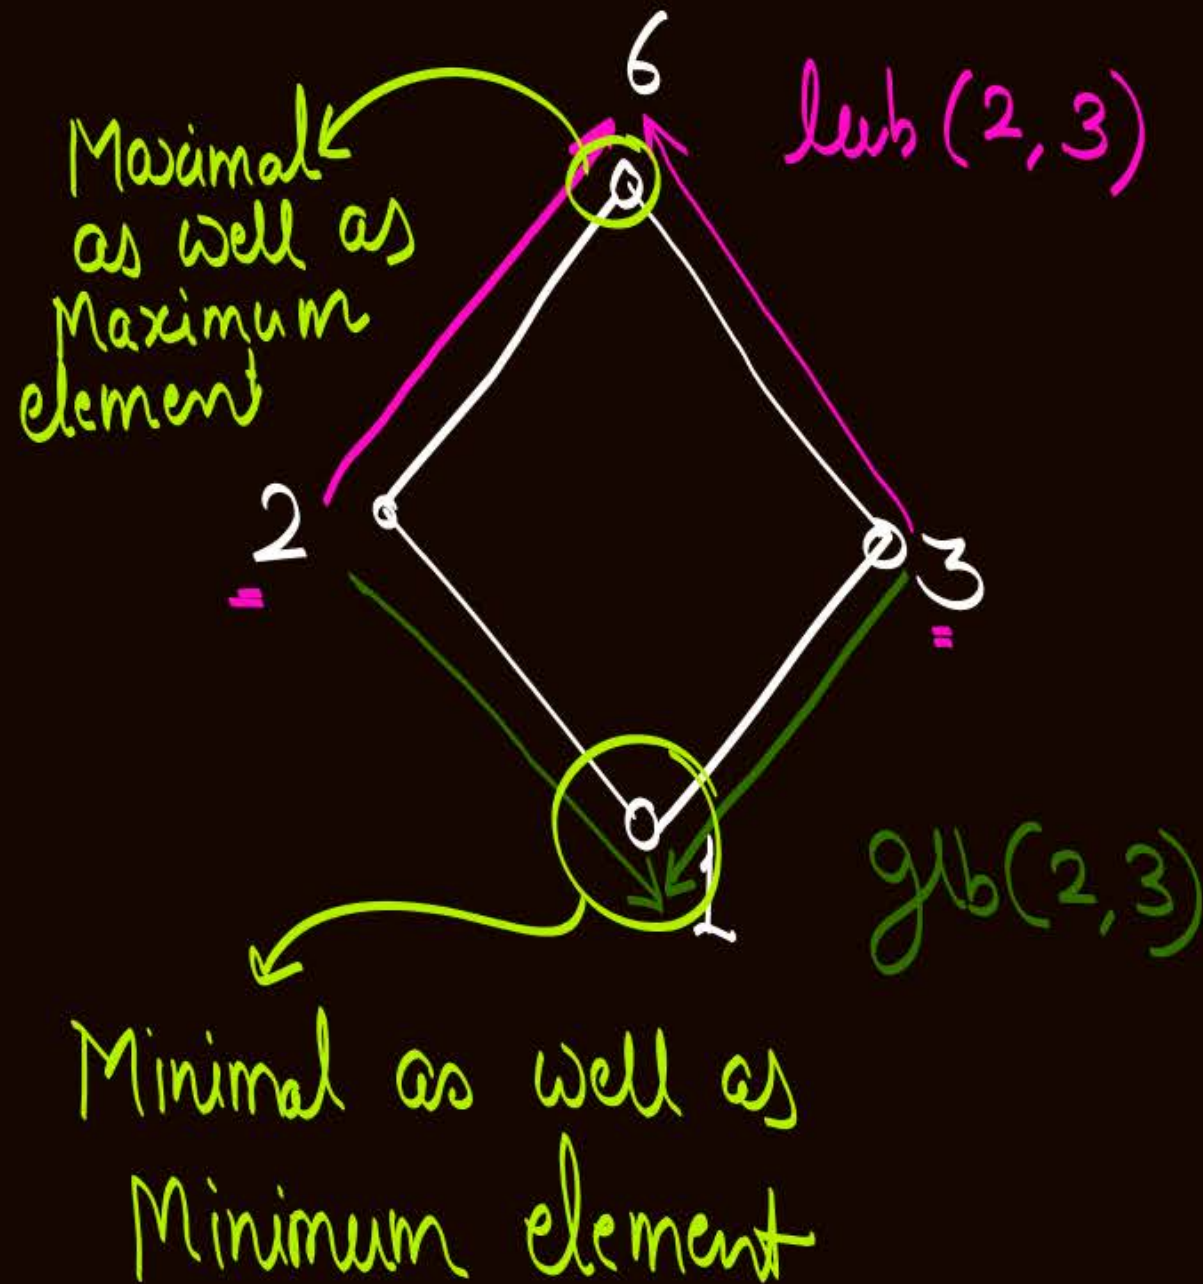 6
lub (2, 3)
Maximal
as well as
Maximum
element
2
3
1
glb(2, 3)
Minimal as well as
Minimum element